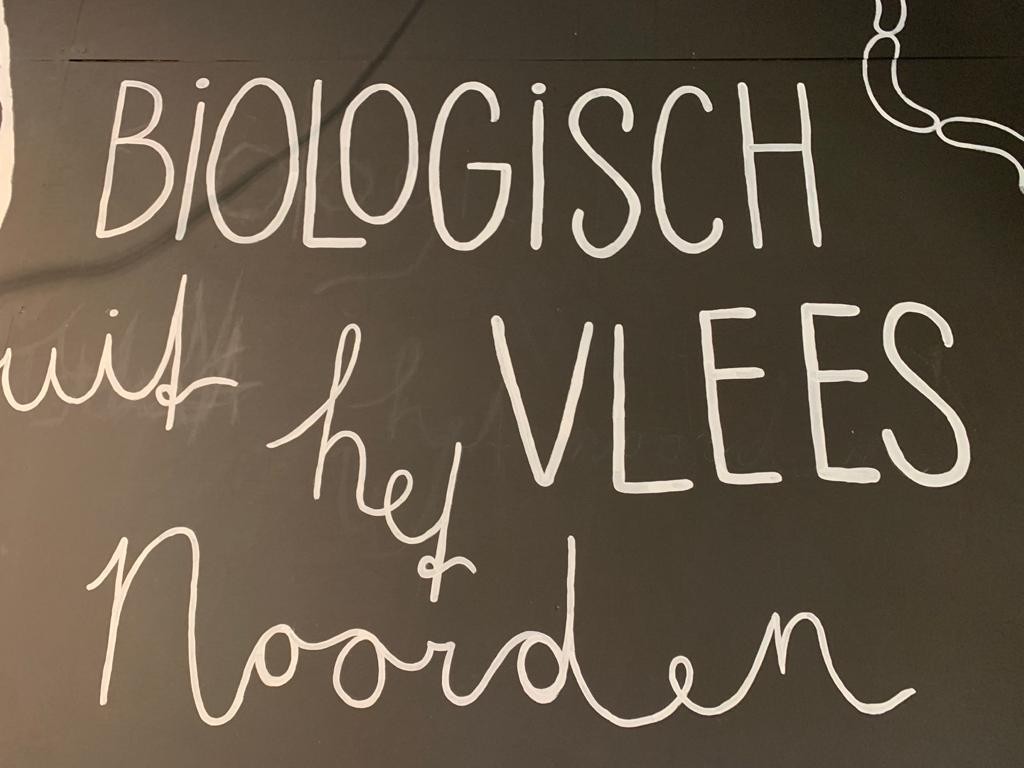 BiOLOGiSCH
VLEES
uit het
Noorden